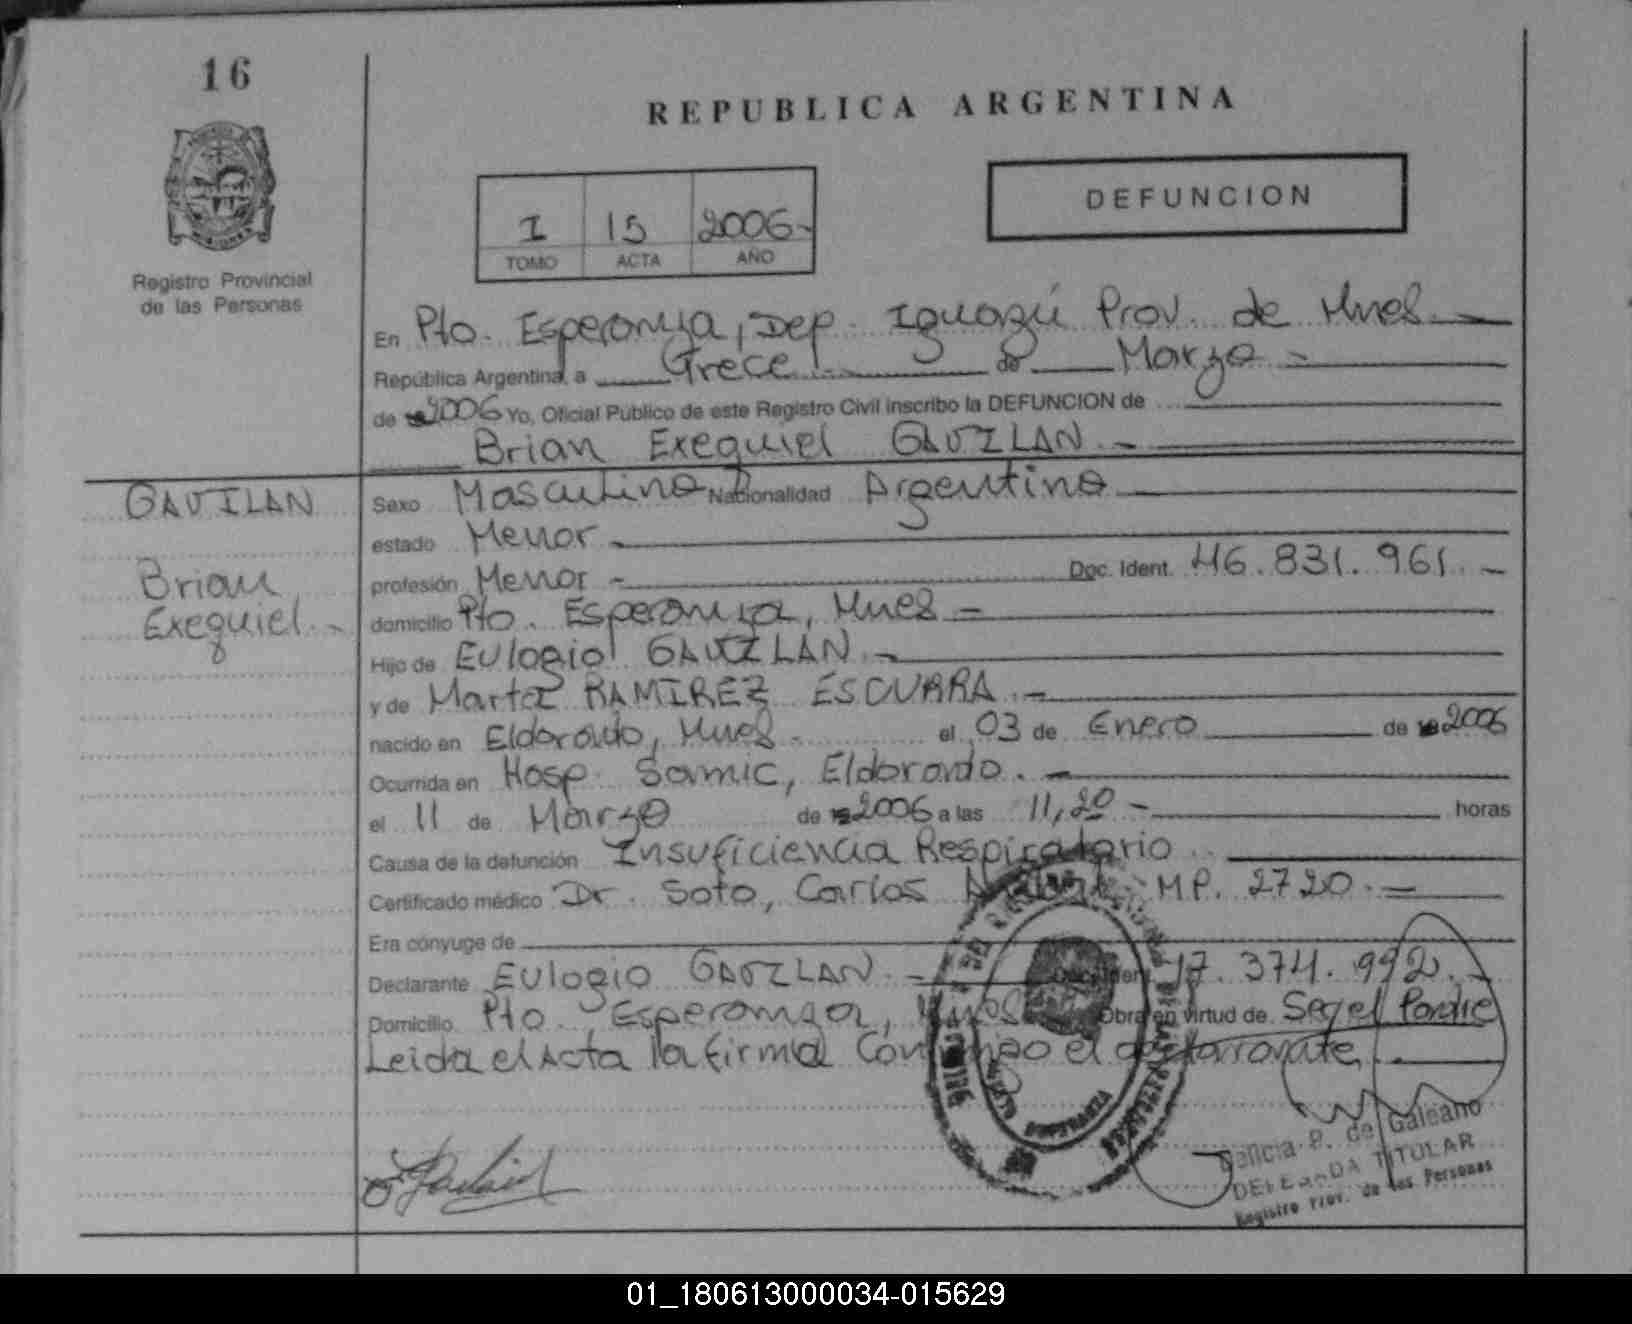 16
REPUBLICA ARGENTINA
DEFUNCION
I 15 2006-
TOMO ACTA AÑO
Registro Provincial
de las Personas
En Pto. Esperanza, Dep. Iguazú Prov. de Mnes.
República Argentina, a Trece de Marzo
de 2006 Yo, Oficial Público de este Registro Civil inscribo la DEFUNCION de
Brian Exequiel GAVILAN
GAVILAN
Brian
Exequiel.
Sexo Masculino Nacionalidad Argentino
estado Menor
profesión Menor Doc. Ident. 46.831.961.
domicilio Pto. Esperanza, Mnes
Hijo de Eulogio GAVILAN
y de Marta RAMIREZ ESCURRA
nacido en Eldorado, Mnes el 03 de Enero de 2006
Ocurrida en Hosp. Samic, Eldorado.
el 11 de Marzo de 2006 a las 11,20 horas
Causa de la defunción Insuficiencia Respiratorio
Certificado médico Dr. Soto, Carlos M.P. 2720.
Era cónyuge de
Declarante Eulogio GAVILAN Doc. Ident. 17.374.992.
Domicilio Pto. Esperanza, Mnes Obra en virtud de Ser el Padre
Leida el Acta la firma Conmigo el declarante.
Felicia P. de Galeano
DELEGADA TITULAR
Registro Prov. de las Personas
01_180613000034-015629